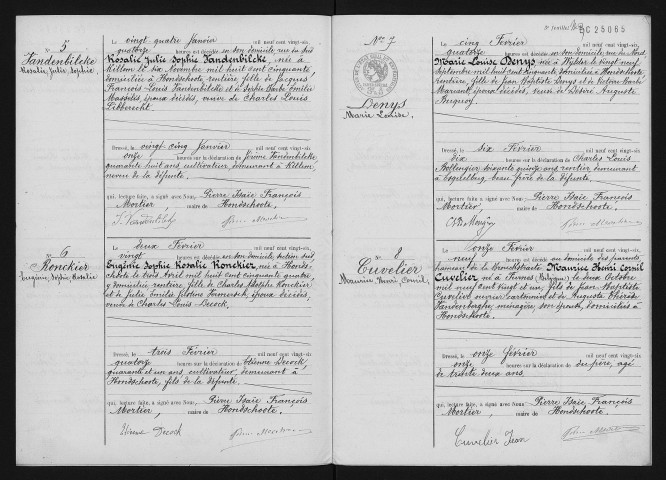 N° 5
Vandenbilcke
Rosalie, Julie, Sophie
Le vingt-quatre Janvier mil neuf cent vingt-six,
quatorze heures est décédée en son domicile rue du sud
Rosalie Julie Sophie Vandenbilcke, née à
Killem le six Novembre mil huit cent cinquante,
domiciliée à Hondschoote, rentière, fille de Jacques
François Louis Vandenbilcke et de Sophie Barbe Emélie
époux décédés, veuve de Charles Louis
Libbrecht
Dressé, le vingt cinq Janvier mil neuf cent vingt-six
onze heures sur la déclaration de Vandenbilcke
quarante huit ans cultivateur, demeurant à Killem,
neveu de la défunte.
qui, lecture faite, a signé avec Nous, Pierre Isaïe François
Mortier, maire de Hondschoote.
N° 6
Ronckier
Eugénie, Sophie, Rosalie
Le deux Février mil neuf cent vingt-six
vingt heures est décédée en son domicile section sud
Eugénie Sophie Rosalie Ronckier, née à Honds-
choote le trois Avril mil huit cent cinquante quatre,
y domiciliée, rentière, fille de Charles Adolphe Ronckier
et de Julie Emélie époux décédés,
veuve de Charles Louis Decock.
Dressé, le trois Février mil neuf cent vingt-six
quatorze heures sur la déclaration de Etienne Decock
quarante et un ans cultivateur, demeurant à
Hondschoote, fils de la défunte.
qui, lecture faite, a signé avec Nous, Pierre Isaïe François
Mortier, maire de Hondschoote.
Decock
C 25065
N° 7
Denys
Marie Louise.
Le cinq Février mil neuf cent vingt-six,
quatorze heures est décédée en son domicile rue du Nord
Marie Louise Denys, née à Wylder le vingt neuf
Septembre mil huit cent cinquante domiciliée à Hondschoote
rentière, fille de Jean Baptiste Denys et de
époux décédés, veuve de Désiré Auguste
Dressé, le six Février mil neuf cent vingt-six
dix heures sur la déclaration de Charles Louis
soixante quinze ans rentier demeurant
à beau frère de la défunte.
qui, lecture faite, a signé avec Nous, Pierre Isaïe François
Mortier, maire de Hondschoote.
N° 8
Cuvelier
Maurice Henri Cornil.
Le onze Février mil neuf cent vingt-six
neuf heures est décédé au domicile des parents,
hameau de la Maurice Henri Cornil
Cuvelier, né à Furnes (Belgique) le deux Octobre
mil neuf cent vingt et un, fils de Jean Baptiste
Cuvelier et de Auguste
Vandenberghe, ménagère, son épouse, domiciliés à
Hondschoote.
Dressé, le onze février mil neuf cent vingt-six
dix heures sur la déclaration du père, âgé
de trente deux ans.
qui, lecture faite, a signé avec Nous, Pierre Isaïe François
Mortier, maire de Hondschoote.
Cuvelier Jean